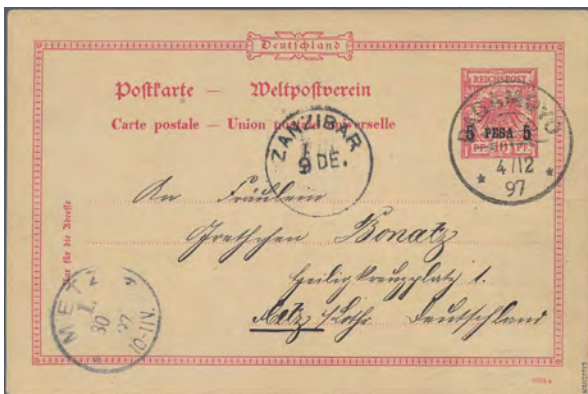 Deutschland
REICHSPOST
Postkarte — Weltpostverein
Carte postale – Union postale universelle
5 PESA 5
10
BAGAMOYO
4/12
97
ZANZIBAR
9 DE.
Nur für die Adresse
An Fräulein
Grethchen Bonatz
Heiligkreuzplatz 1.
Metz i/Lothr. Deutschland
METZ
1.
30
97
10-11V.